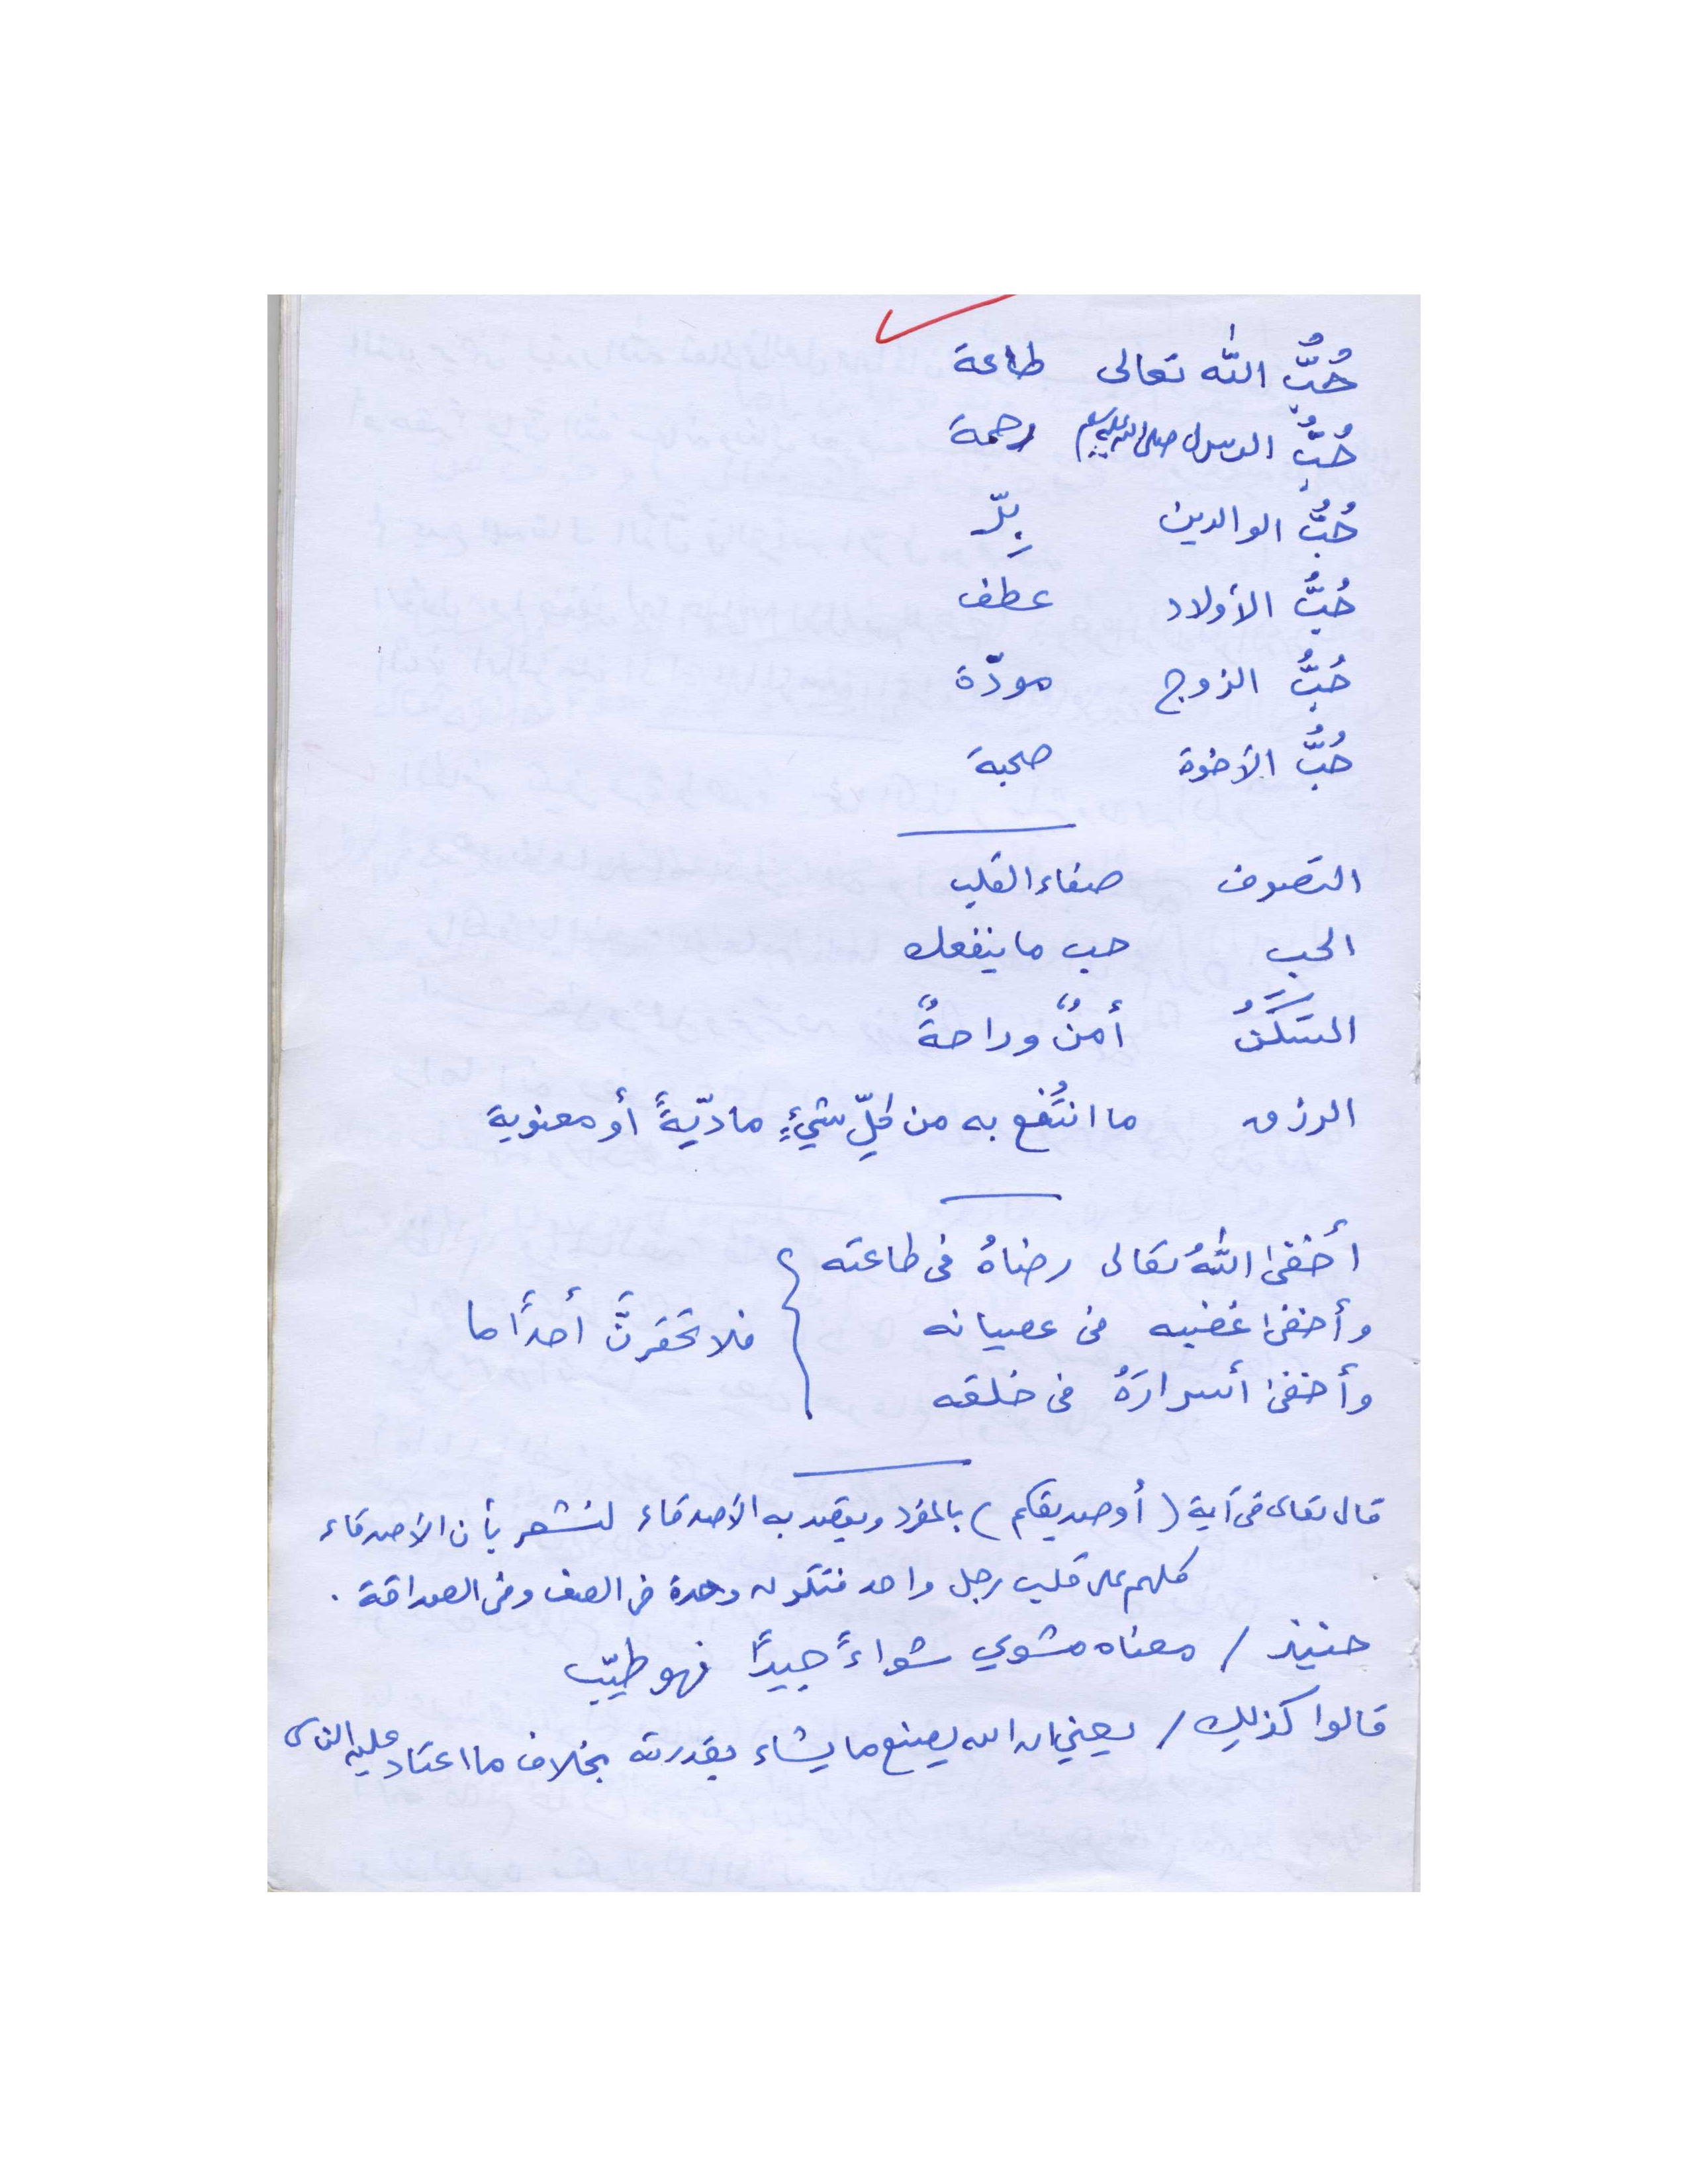 حُبُّ اللّٰه تعالى طاعة
حُبُّ الرسول صلى الله عليه وسلم رحمة
حُبُّ الوالدين بِرّ
حُبُّ الأولاد عطف
حُبُّ الزوج مودّة
حُبُّ الأخوة صحبة
التصوف صفاء القلب
الحب حب ما ينفعك
السَكَنُ أمنٌ وراحةٌ
الرزق ما انتُفع به من كلِّ شيءٍ ماديّةً أو معنوية
أخفىٰ اللّٰهُ تعالى رضاهُ فى طاعته
وأخفىٰ غضبه فى عصيانه
فلا تحقرنَّ أحداً ما
وأخفىٰ أسرارَهُ فى خلقه
قال تعالى فى آية (أو صديقكم) بالمفرد ويقصد به الأصدقاء لنشعر بأن الأصدقاء
كلهم على قلب رجل واحد فتكون وحدة فى الصف وفى الصداقة .
حنيذ / معناه مشوي شواءً جيداً فهو طيّب
قالوا كذلِك / يعني ان الله يصنع ما يشاء بقدرته بخلاف ما اعتاد عليه الناس